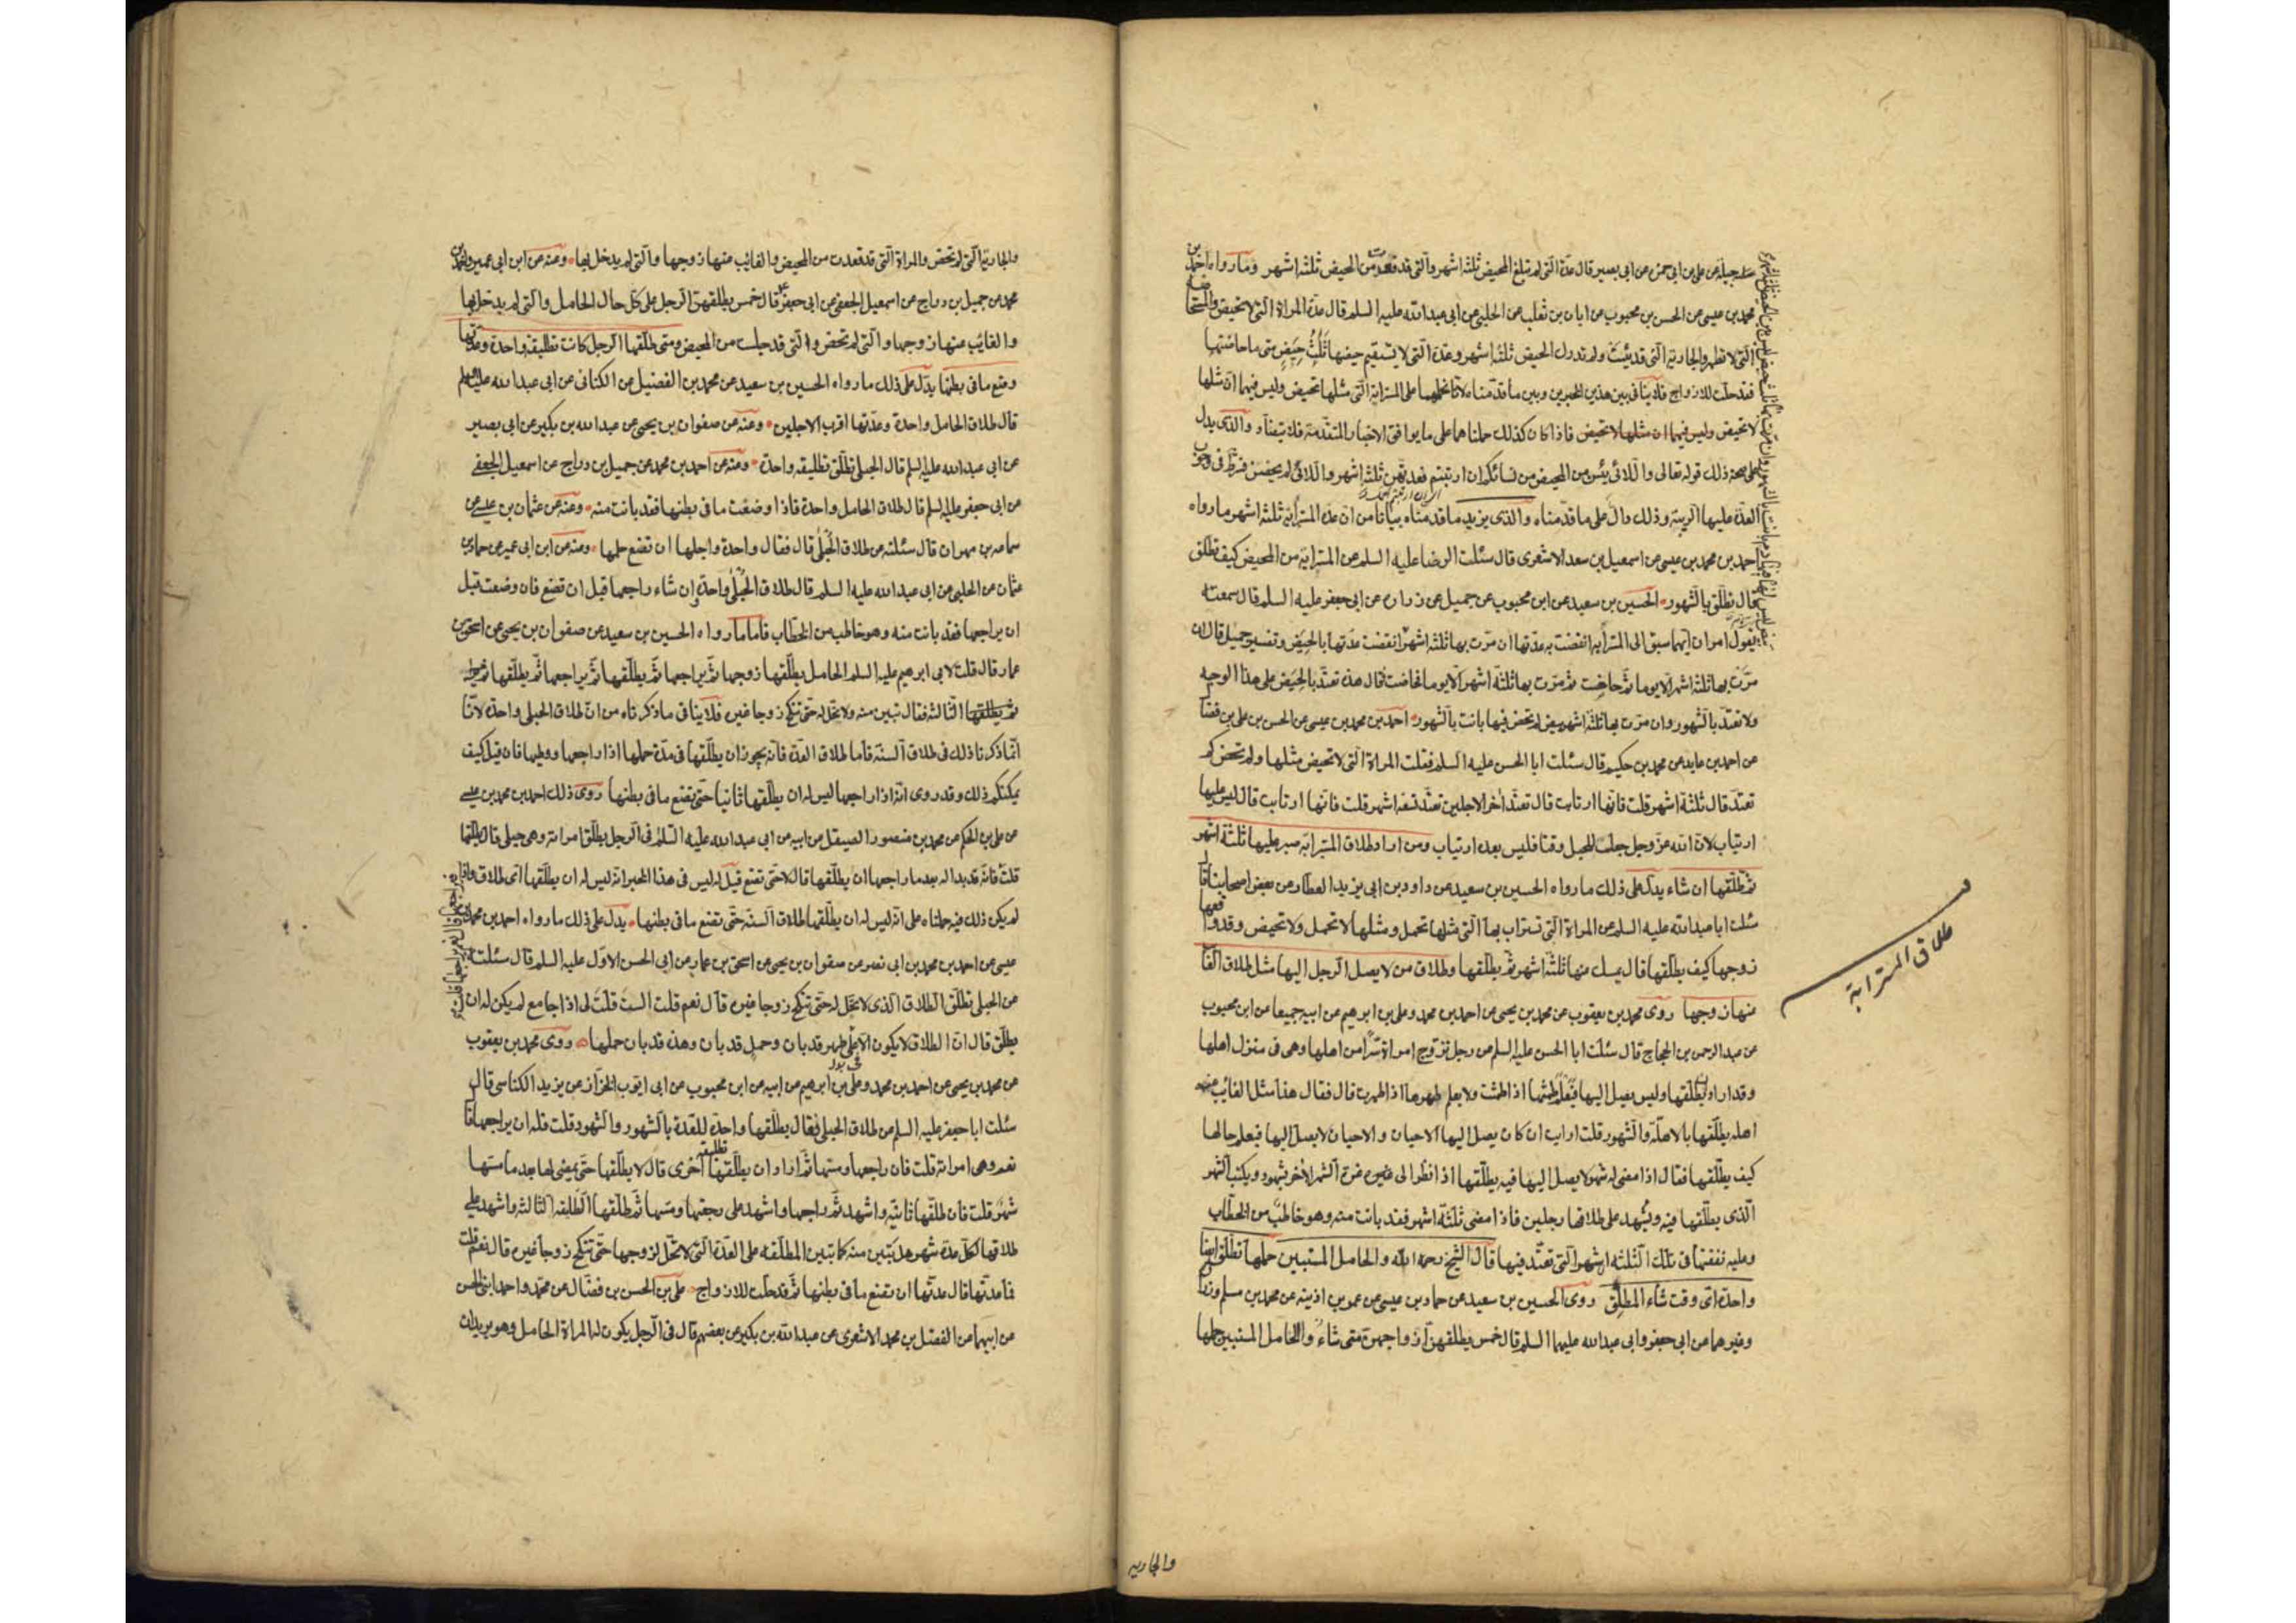 جبلة عن علي بن ابي حمزة عن ابي بصير قال عدة التى لم تبلغ المحيض ثلثة اشهر والتى قد قعدت من المحيض ثلثة اشهر وما رواه احمد بن
محمد بن عيسى عن الحسن بن محبوب عن ابان بن تغلب عن الحلبى عن ابى عبد الله عليه السلم قال عدة المراة التى لا تحيض والمستحاضة
التى لا تطهر والجارية التى قد يئست ولم تدرك الحيض ثلثة اشهر وعدة التى لا يستقيم حيضها ثلث حيض متى ما حاضتها
فقد حلت للازواج فلا ينافى بين هذين الخبرين وبين ما قدمناه لانا نحملهما على المسترابة التى مثلها تحيض وليس فيهما ان مثلها
لا تحيض وليس فيهما ان مثلها لا تحيض فاذا كان كذلك حملناهما على ما يوافق الاخبار المتقدمة فلا تتنافى والذى يدل
على صحة ذلك قوله تعالى واللائى يئسن من المحيض من نسائكم ان ارتبتم فعدتهن ثلثة اشهر واللائى لم يحضن فشرط فى وجوب
العدة عليها الريبة وذلك دال على ما قدمناه والذى يزيد ما قدمناه بيانا من ان عدة المسترابة ثلثة اشهر ما رواه
احمد بن محمد بن عيسى عن اسمعيل بن سعد الاشعرى قال سئلت الرضا عليه السلم عن المسترابة من المحيض كيف تطلق
قال تطلق بالشهور الحسين بن سعيد عن ابن محبوب عن جميل عن زرارة عن ابى جعفر عليه السلم قال سمعته
يقول امران ايهما سبق الى المسترابة انقضت به عدتها ان مرت بها ثلثة اشهر انقضت عدتها بالحيض وتفسير جميل قال ان
مرت بها ثلثة اشهر الا يوما ثم حاضت ثم مرت بها ثلثة اشهر الا يوما فحاضت قال هذه تعتد بالحيض على هذا الوجه
ولا تعتد بالشهور وان مرت بها ثلثة اشهر بيض لم تحض فيها بانت بالشهور احمد بن محمد بن عيسى عن الحسن بن على بن فضال
عن احمد بن عايد عن محمد بن حكيم قال سئلت ابا الحسن عليه السلم فقلت المراة التى لا تحيض مثلها ولم تحض كم
تعتد قال ثلثة اشهر قلت فانها ارتابت قال تعتد اخر الاجلين تعتد تسعة اشهر قلت فانها ارتابت قال ليس عليها
ارتياب لان الله عز وجل جعلت للحبل وقتا فليس بعده ارتياب ومن اراد طلاق المسترابة صبر عليها ثلثة اشهر
ثم طلقها ان شاء يدل على ذلك ما رواه الحسين بن سعيد عن داود بن ابى يزيد العطار عن بعض اصحابنا قال
سئلت ابا عبد الله عليه السلم عن المراة التى تستراب بها التى مثلها تحمل ومثلها لا تحمل ولا تحيض وقد واقعها
زوجها كيف يطلقها قال يمسك عنها ثلثة اشهر ثم يطلقها وطلاق من لا يصل الرجل اليها مثل طلاق الغائب
عنها زوجها روى محمد بن يعقوب عن محمد بن يحيى عن احمد بن محمد وعلى بن ابرهيم عن ابيه جميعا عن ابن محبوب
عن عبد الرحمن بن الحجاج قال سئلت ابا الحسن عليه السلم عن رجل تزوج امراة سرا من اهلها وهى فى منزل اهلها
وقد اراد ان يطلقها وليس يصل اليها فيعلم طمثها اذا طمثت ولا يعلم طهرها اذا طهرت قال فقال هذا مثل الغائب عن
اهله يطلقها بالاهلة والشهور قلت ارايت ان كان يصل اليها الاحيان والاحيان لا يصل اليها فيعلم حالها
كيف يطلقها فقال اذا مضى له شهر لا يصل اليها فيه يطلقها اذا نظر الى غرة الشهر الاخر بشهود ويكتب الشهر
الذى يطلقها فيه ويشهد على طلاقها رجلين فاذا مضى ثلثة اشهر فقد بانت منه وهو خاطب من الخطاب
وعليه نفقتها فى تلك الثلثة اشهر التى تعتد فيها قال الشيخ رحمه الله والحامل المستبين حملها تطلق ايضا
واحدة اى وقت شاء المطلق روى الحسين بن سعيد عن حماد بن عيسى عن عمر بن اذينة عن محمد بن مسلم وزرارة
وغيرهما عن ابى جعفر وابى عبد الله عليهما السلم قال خمس يطلقهن ازواجهن متى شاءوا الحامل المستبين حملها
طلاق المسترابة
والجارية
والجارية التى لم تحض والمراة التى قد قعدت من المحيض والغائب عنها زوجها والتى لم يدخل بها وعنه عن ابن ابى عمير واحمد بن
محمد عن جميل بن دراج عن اسمعيل الجعفى عن ابى جعفر قال خمس يطلقهن الرجل على كل حال الحامل والتى لم يدخل بها
والغائب عنها زوجها والتى لم تحض والتى قد جلست من المحيض ومتى طلقها الرجل كانت تطليقة واحدة وعدتها
وضع ما فى بطنها يدل على ذلك ما رواه الحسين بن سعيد عن محمد بن الفضيل عن الكنانى عن ابى عبد الله عليه السلم
قال طلاق الحامل واحدة وعدتها اقرب الاجلين وعنه عن صفوان بن يحيى عن عبد الله بن بكير عن ابى بصير
عن ابى عبد الله عليه السلم قال الحبلى تطلق تطليقة واحدة وعنه عن احمد بن محمد عن جميل بن دراج عن اسمعيل الجعفى
عن ابى جعفر عليه السلم قال طلاق الحامل واحدة فاذا وضعت ما فى بطنها فقد بانت منه وعنه عن عثمان بن عيسى عن
سماعة بن مهران قال سئلته عن طلاق الحبلى قال فقال واحدة واجلها ان تضع حملها وعنه عن ابن ابى عمير عن حماد بن
عثمان عن الحلبى عن ابى عبد الله عليه السلم قال طلاق الحبلى واحدة ان شاء راجعها قبل ان تضع فان وضعت قبل
ان يراجعها فقد بانت منه وهو خاطب من الخطاب فاما ما رواه الحسين بن سعيد عن صفوان بن يحيى عن اسحق بن
عمار قال قلت لابى ابرهيم عليه السلم الحامل يطلقها زوجها ثم يراجعها ثم يطلقها ثم يراجعها ثم يطلقها
ثم يطلقها الثالثة فقال تبين منه ولا تحل له حتى تنكح زوجا غيره فلا ينافى ما ذكرناه من ان طلاق الحبلى واحدة لانا
انما ذكرنا ذلك فى طلاق السنة فاما طلاق العدة فانه يجوز ان يطلقها فى مدة حملها اذا راجعها ووطيها فان قيل كيف
يمكنكم ذلك وقد روى انه اذا راجعها ليس له ان يطلقها ثانيا حتى تضع ما فى بطنها روى ذلك احمد بن محمد بن عيسى
عن على بن الحكم عن محمد بن منصور الصيقل عن ابيه عن ابى عبد الله عليه السلم فى الرجل يطلق امراته وهى حبلى قال يطلقها
قلت فانه قد بدا له بعد ما راجعها ان يطلقها قال لا حتى تضع قيل له ليس فى هذا الخبر انه ليس له ان يطلقها اى طلاق واذا
لم يكن ذلك فيه حملناه على انه ليس له ان يطلقها طلاق السنة حتى تضع ما فى بطنها يدل على ذلك ما رواه احمد بن محمد بن
عيسى عن احمد بن محمد بن ابى نصر عن صفوان بن يحيى عن اسحق بن عمار عن ابى الحسن الاول عليه السلم قال سئلته
عن الحبلى تطلق الطلاق الذى لا تحل له حتى تنكح زوجا غيره قال نعم قلت الست قلت لى اذا جامع لم يكن له ان
يطلق قال ان الطلاق لا يكون الا على طهر قد بان وحمل قد بان وهذه قد بان حملها روى محمد بن يعقوب
عن محمد بن يحيى عن احمد بن محمد وعلى بن ابرهيم عن ابيه عن ابن محبوب عن ابى ايوب الخزاز عن يزيد الكناسى قال
سئلت ابا جعفر عليه السلم عن طلاق الحبلى فقال يطلقها واحدة للعدة بالشهور والشهود قلت فله ان يراجعها قال
نعم وهى امراته قلت فان راجعها ومسها ثم اراد ان يطلقها تطليقة اخرى قال لا يطلقها حتى يمضى لها بعد ما مسها
شهر قلت فان طلقها ثانية واشهد ثم راجعها واشهد على رجعتها ومسها ثم طلقها التطليقة الثالثة واشهد على
طلاقها لكل عدة شهر هل تبين منه كما تبين المطلقة على العدة التى لا تحل لزوجها حتى تنكح زوجا غيره قال نعم قلت
فما عدتها قال عدتها ان تضع ما فى بطنها ثم قد حلت للازواج على بن الحسن بن فضال عن محمد واحمد ابنى الحسن
عن ابيهما عن الفضل بن محمد الاشعرى عن عبد الله بن بكير عن بعضهم قال فى الرجل يكون له المراة الحامل وهو يريد ان